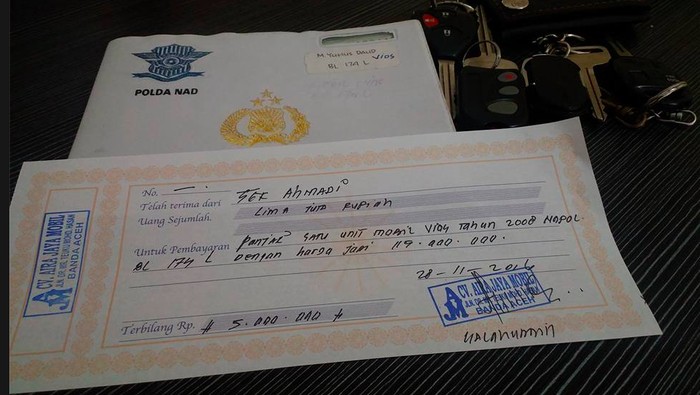 POLDA NAD
BL 174 L VIOS
No. —.
Telah terima dari SEK AHMADI
Uang Sejumlah. LIMA JUTA RUPIAH
Untuk Pembayaran PANJAR SATU UNIT MOBIL VIOS TAHUN 2008 NOPOL
BL 174 L DENGAN HARGA JADI 119.000.000.
Terbilang Rp. # 5.000.000 #
CV. AIRA JAYA MOBIL
BANDA ACEH
CV. AIRA JAYA MOBIL
BANDA ACEH